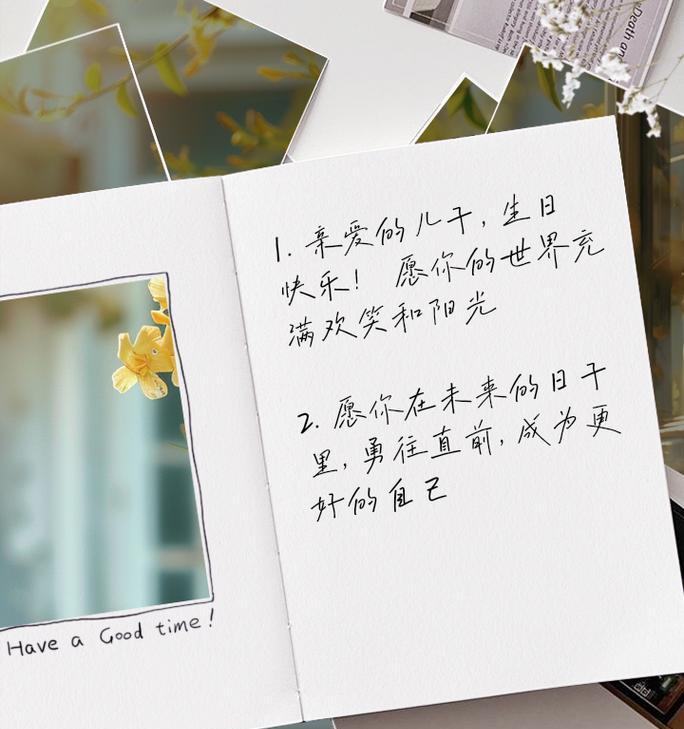 Death an
1. 亲爱的儿子，生日
快乐！ 愿你的世界充
满欢笑和阳光
2. 愿你在未来的日子
里，勇往直前，成为更
好的自己
Have a Good time!